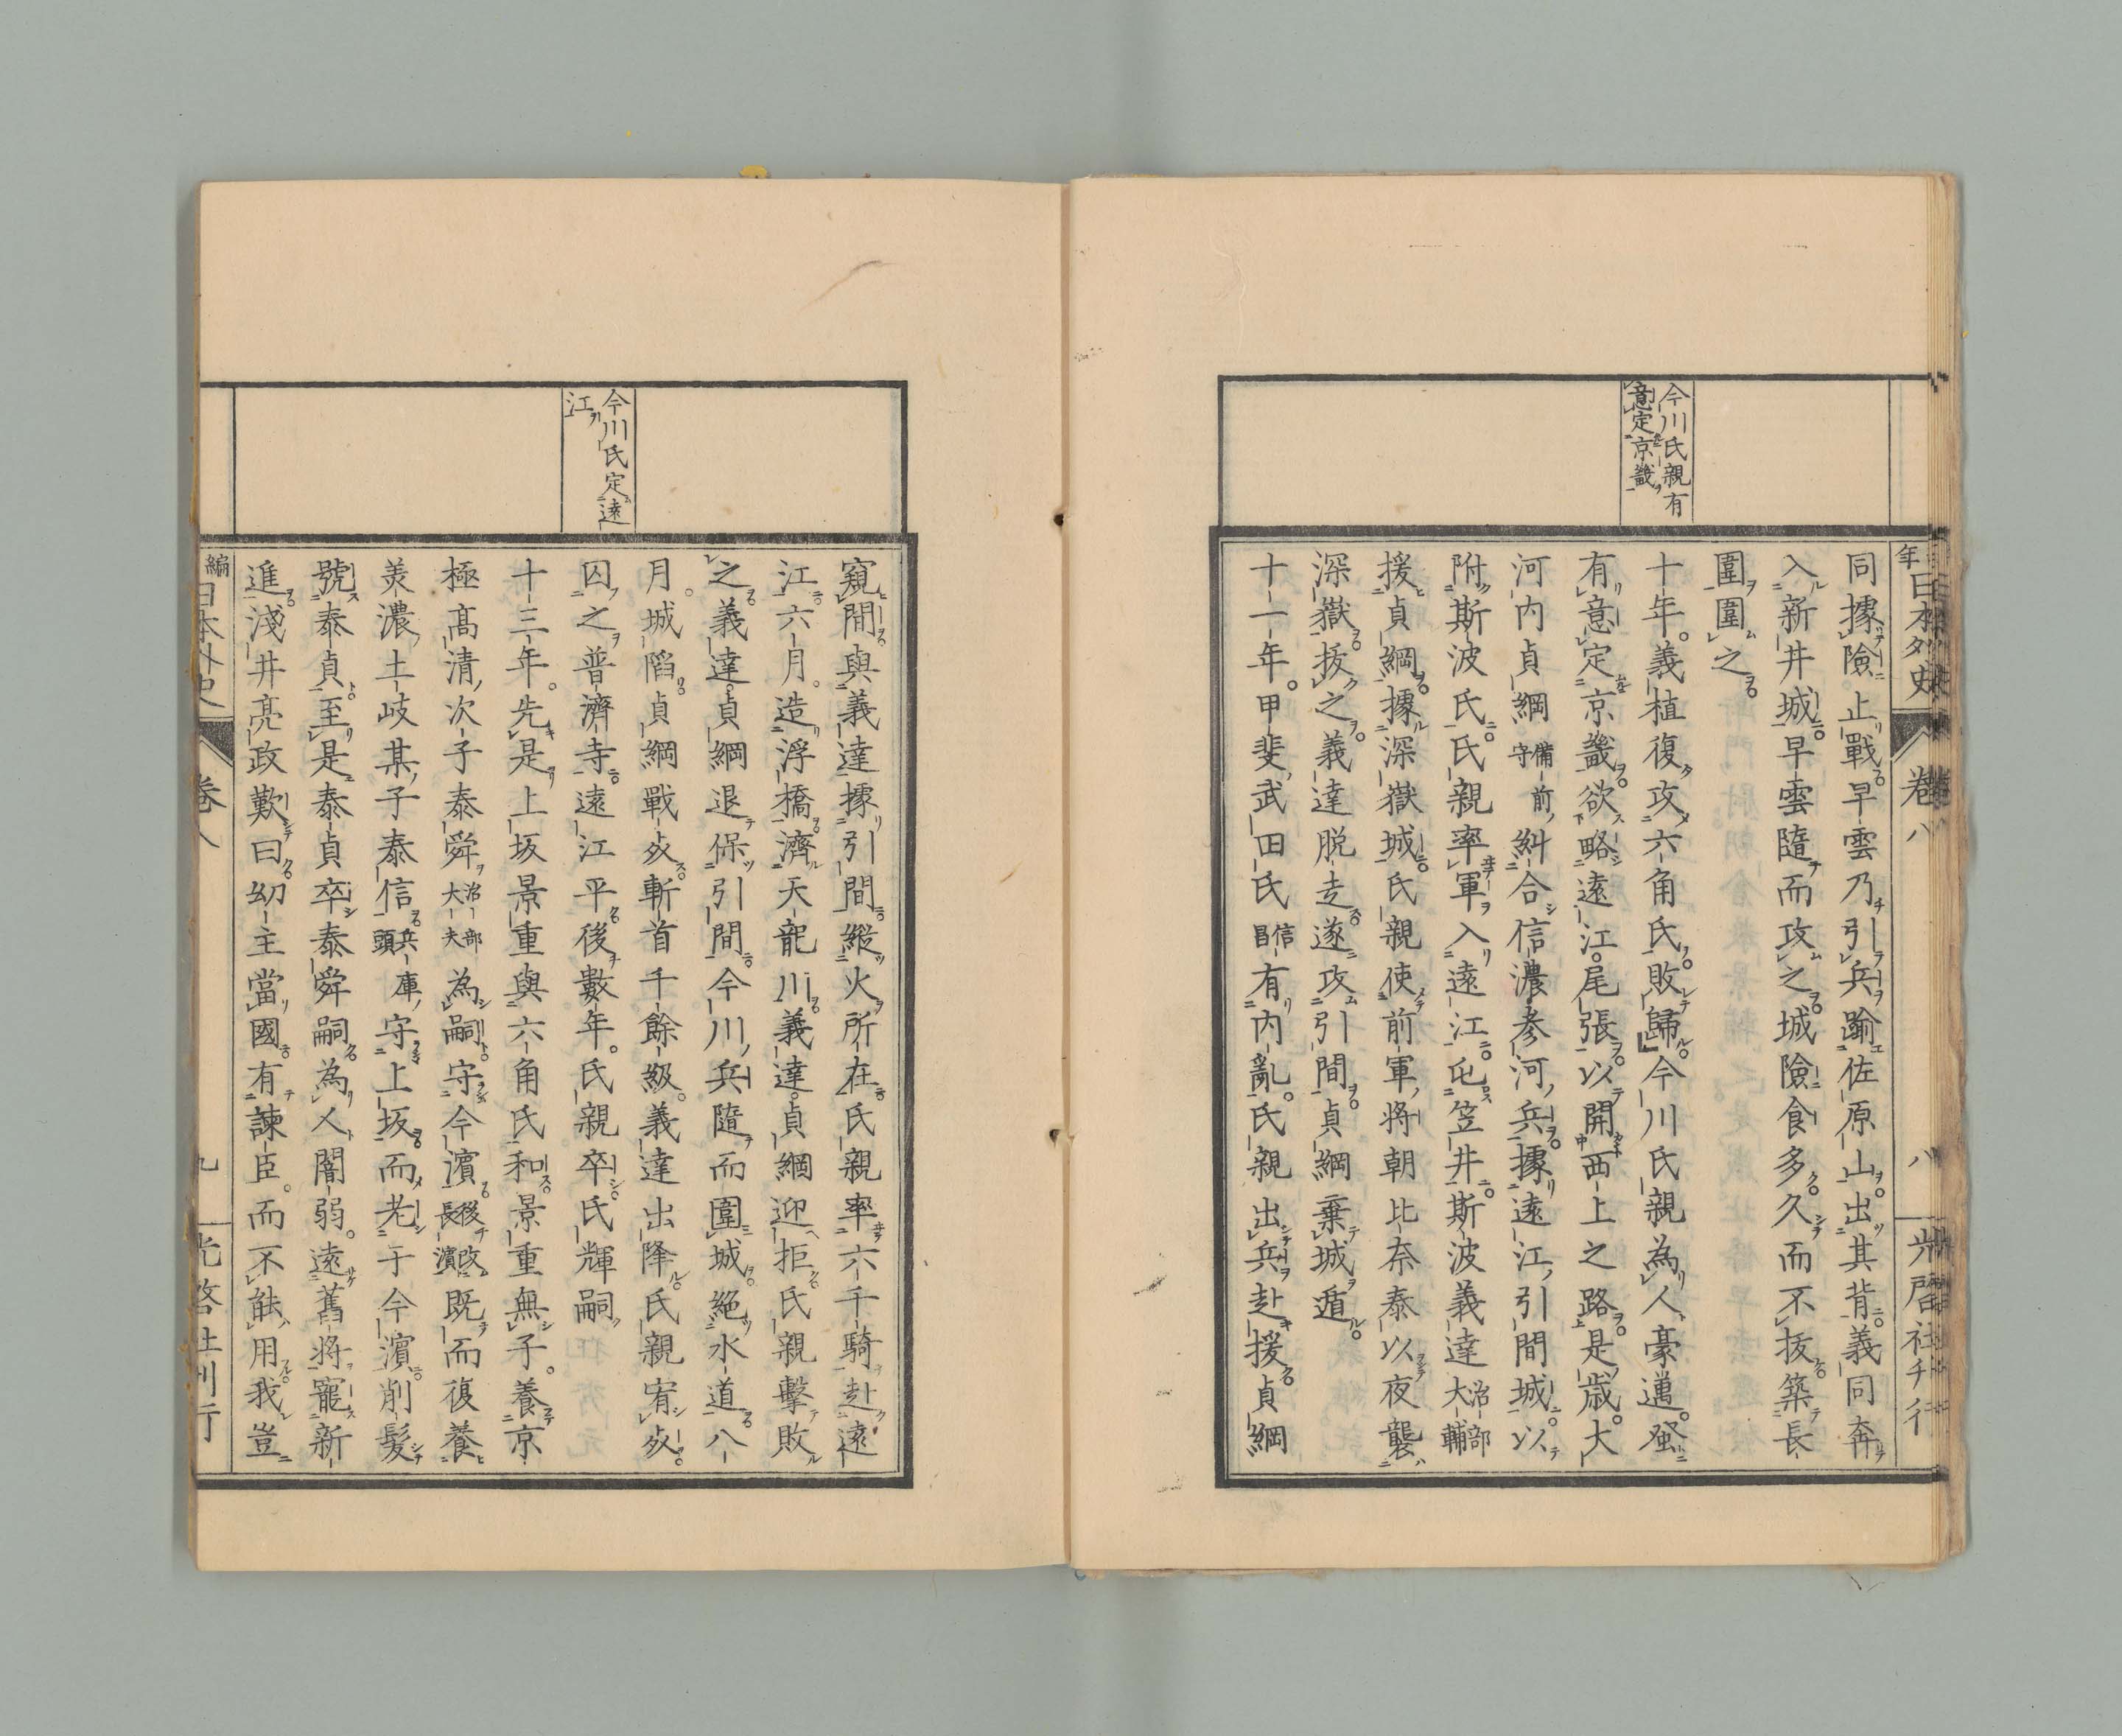 今川氏親有
意定京畿
同據險止戰早雲乃引兵踰佐原山出其背義同奔
入新井城早雲隨而攻之城險食多久而不抜築長
圍圍之
十年。義植復攻六角氏敗歸今川氏親為人豪邁。發
有意定京畿欲略遠江。尾張以開西上之路是歳。大
河内貞綱備前守糾合信濃參河兵據遠江引間城。以
附斯波氏。氏親率軍入遠江屯笠井斯波義達治部大輔
援貞綱據深嶽城氏親使前軍將朝比奈泰以夜襲
深嶽抜之義達脱走遂攻引間貞綱棄城遁
十一年。甲斐武田氏信昌有内亂。氏親出兵赴援貞綱
年日本外史
卷八
八
光啓社刊行
今川氏定遠
江
窺間與義達據引間縱火所在氏親率六千騎赴遠
江六月。造浮橋濟天龍川義達。貞綱迎拒氏親擊敗
之義達。貞綱退保引間今川兵隨而圍城絶水道八
月。城陷貞綱戰死斬首千餘級。義達出降氏親宥死。
囚之普濟寺遠江平後數年。氏親卒氏輝嗣
十三年。先是上坂景重與六角氏和景重無子。養京
極高清次子泰舜治部大夫為嗣守今濱後改長濱既而復養
美濃土岐某子泰信兵庫頭守上坂而老于今濱削髮
號泰貞至是泰貞卒泰舜嗣為人闇弱。遠舊將寵新
進淺井亮政歎曰幼主當國有諫臣。而不能用我豈
編日本外史
卷八
九
光啓社刊行